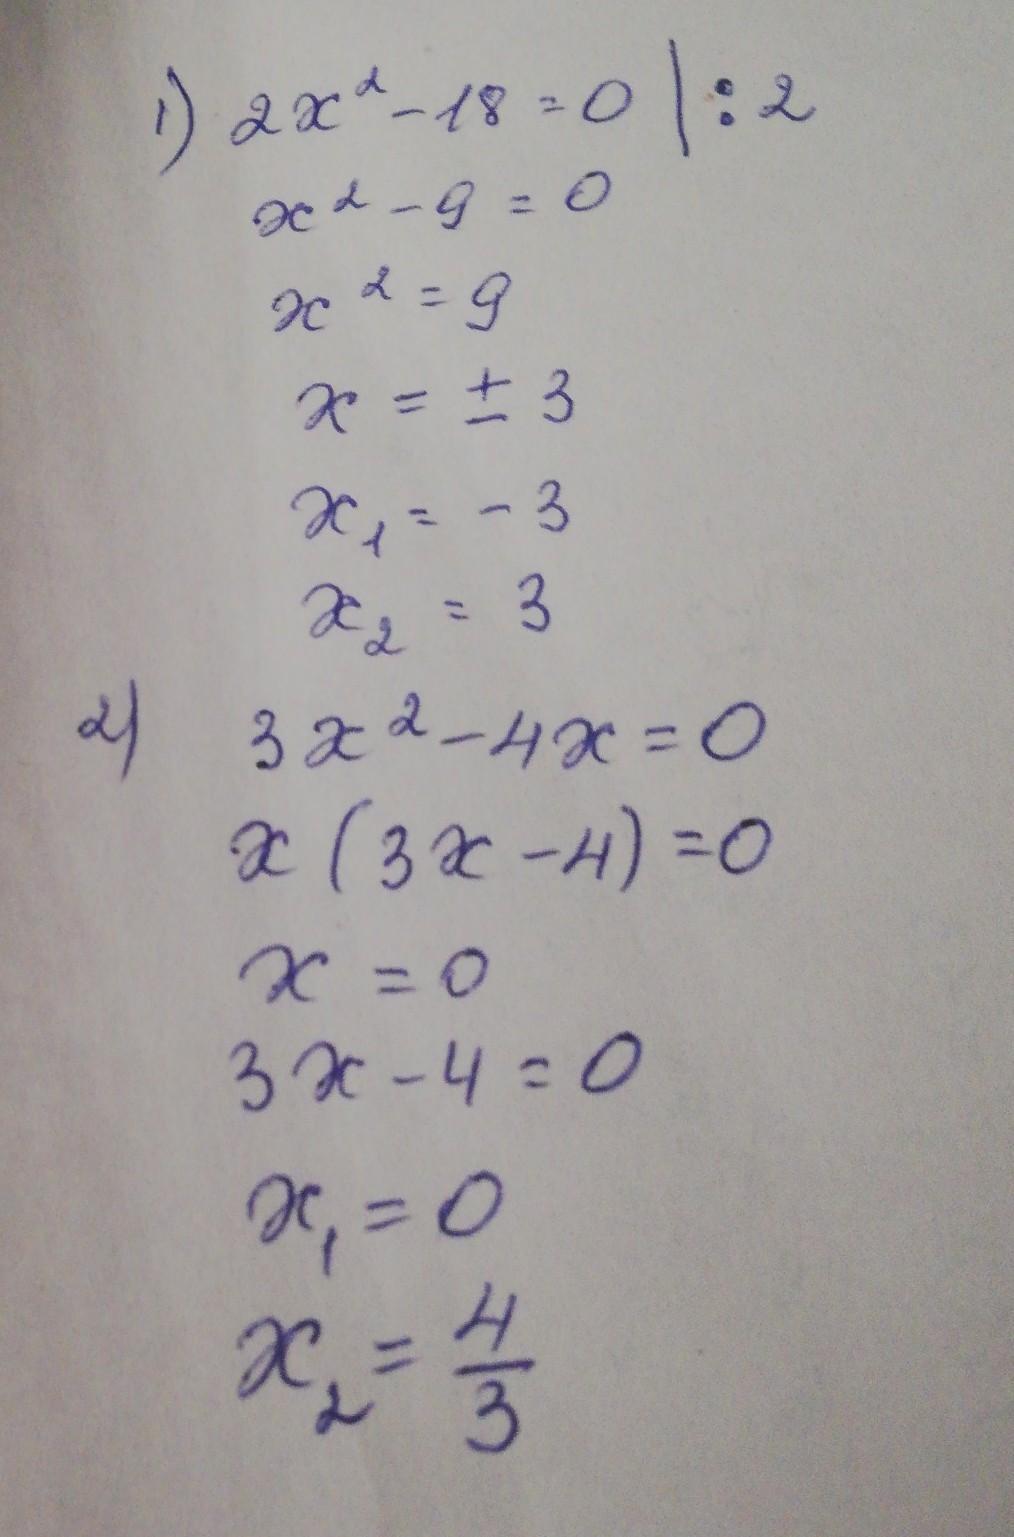 1) 2x² - 18 = 0 | : 2
x² - 9 = 0
x² = 9
x = ± 3
x₁ = - 3
x₂ = 3
2) 3x² - 4x = 0
x (3x - 4) = 0
x = 0
3x - 4 = 0
x₁ = 0
x₂ = 4/3